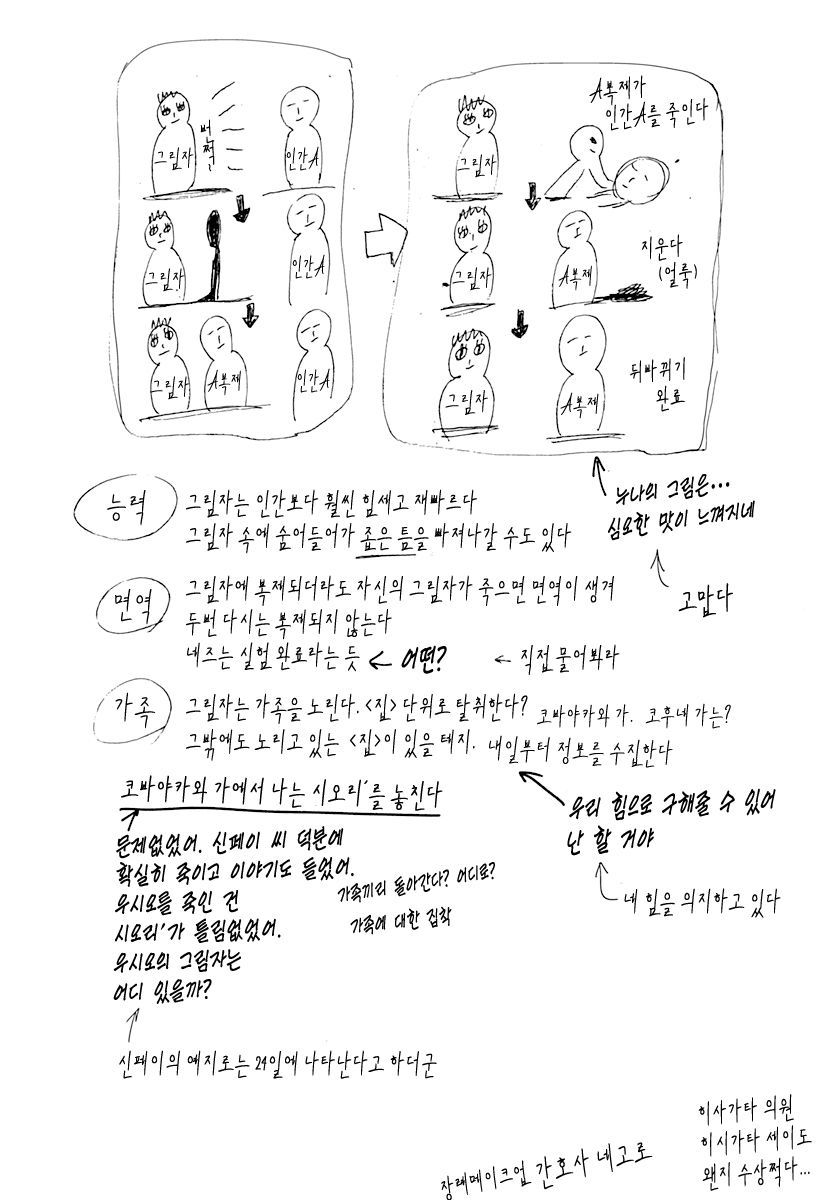 그림자
번쩍
인간A
그림자
인간A
그림자
A복제
인간A
A복제가
인간A를 죽인다
그림자
그림자
A복제
지운다
(얼룩)
그림자
A복제
뒤바뀌기
완료
누나의 그림은...
심오한 맛이 느껴지네
고맙다
능력
그림자는 인간보다 훨씬 힘세고 재빠르다
그림자 속에 숨어들어가 좁은 틈을 빠져나갈 수도 있다
면역
그림자에 복제되더라도 자신의 그림자가 죽으면 면역이 생겨
두번 다시는 복제되지 않는다
네즈는 실험 완료라는 듯 ← 어떤? ← 직접 물어봐라
가족
그림자는 가족을 노린다. <집> 단위로 탈취한다? 코바야카와 가. 코후네 가는?
그밖에도 노리고 있는 <집>이 있을 테지. 내일부터 정보를 수집한다
우리 힘으로 구해줄 수 있어
난 할 거야
네 힘을 의지하고 있다
코바야카와 가에서 나는 시오리'를 놓친다
문제없었어. 신페이 씨 덕분에
확실히 죽이고 이야기도 들었어.
우시오를 죽인 건
시오리'가 틀림없었어.
우시오의 그림자는
어디 있을까?
가족끼리 돌아간다? 어디로?
가족에 대한 집착
신페이의 예지로는 24일에 나타난다고 하더군
장례메이크업 간호사 네고로
히사가타 의원
히시가타 세이도
왠지 수상쩍다...